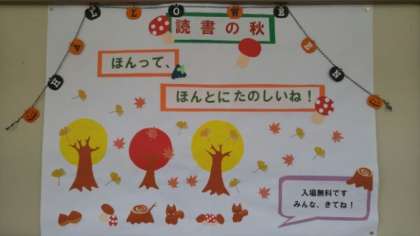 HALLOWEEN
読書の秋
ほんって、
ほんとにたのしいね！
入場無料です
みんな、きてね！